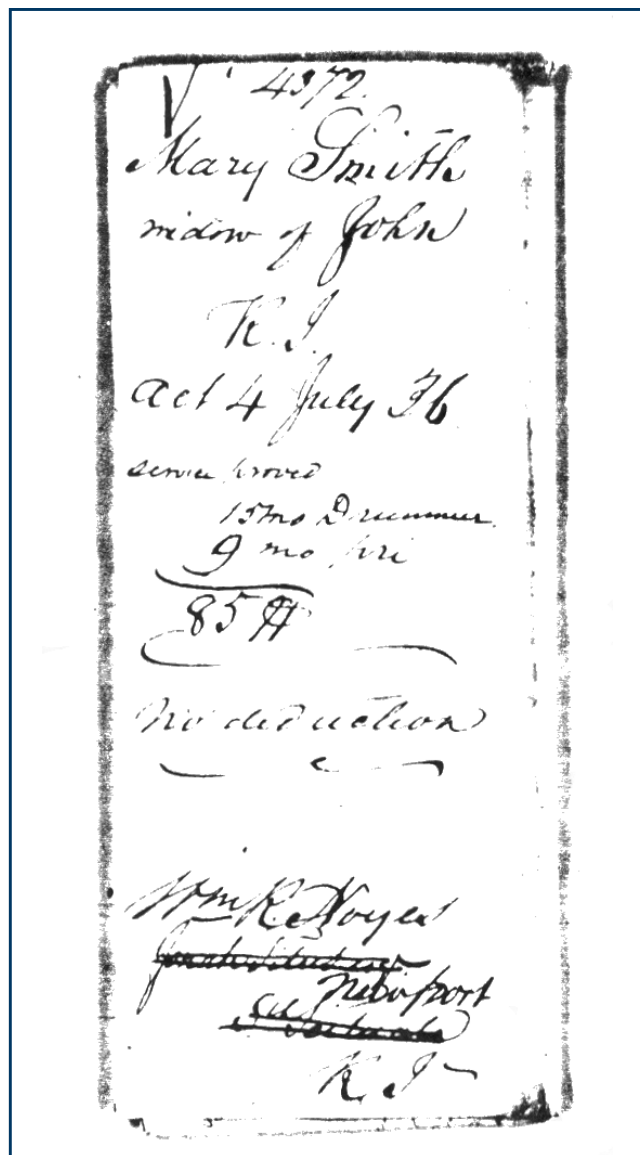 4372.
Mary Smith
widow of John
R. I.
Act 4 July 36
service proved
15 mo Drummer
9 mo pri
85 $
No deduction
Wm R. Noyes
Newport
R. I.